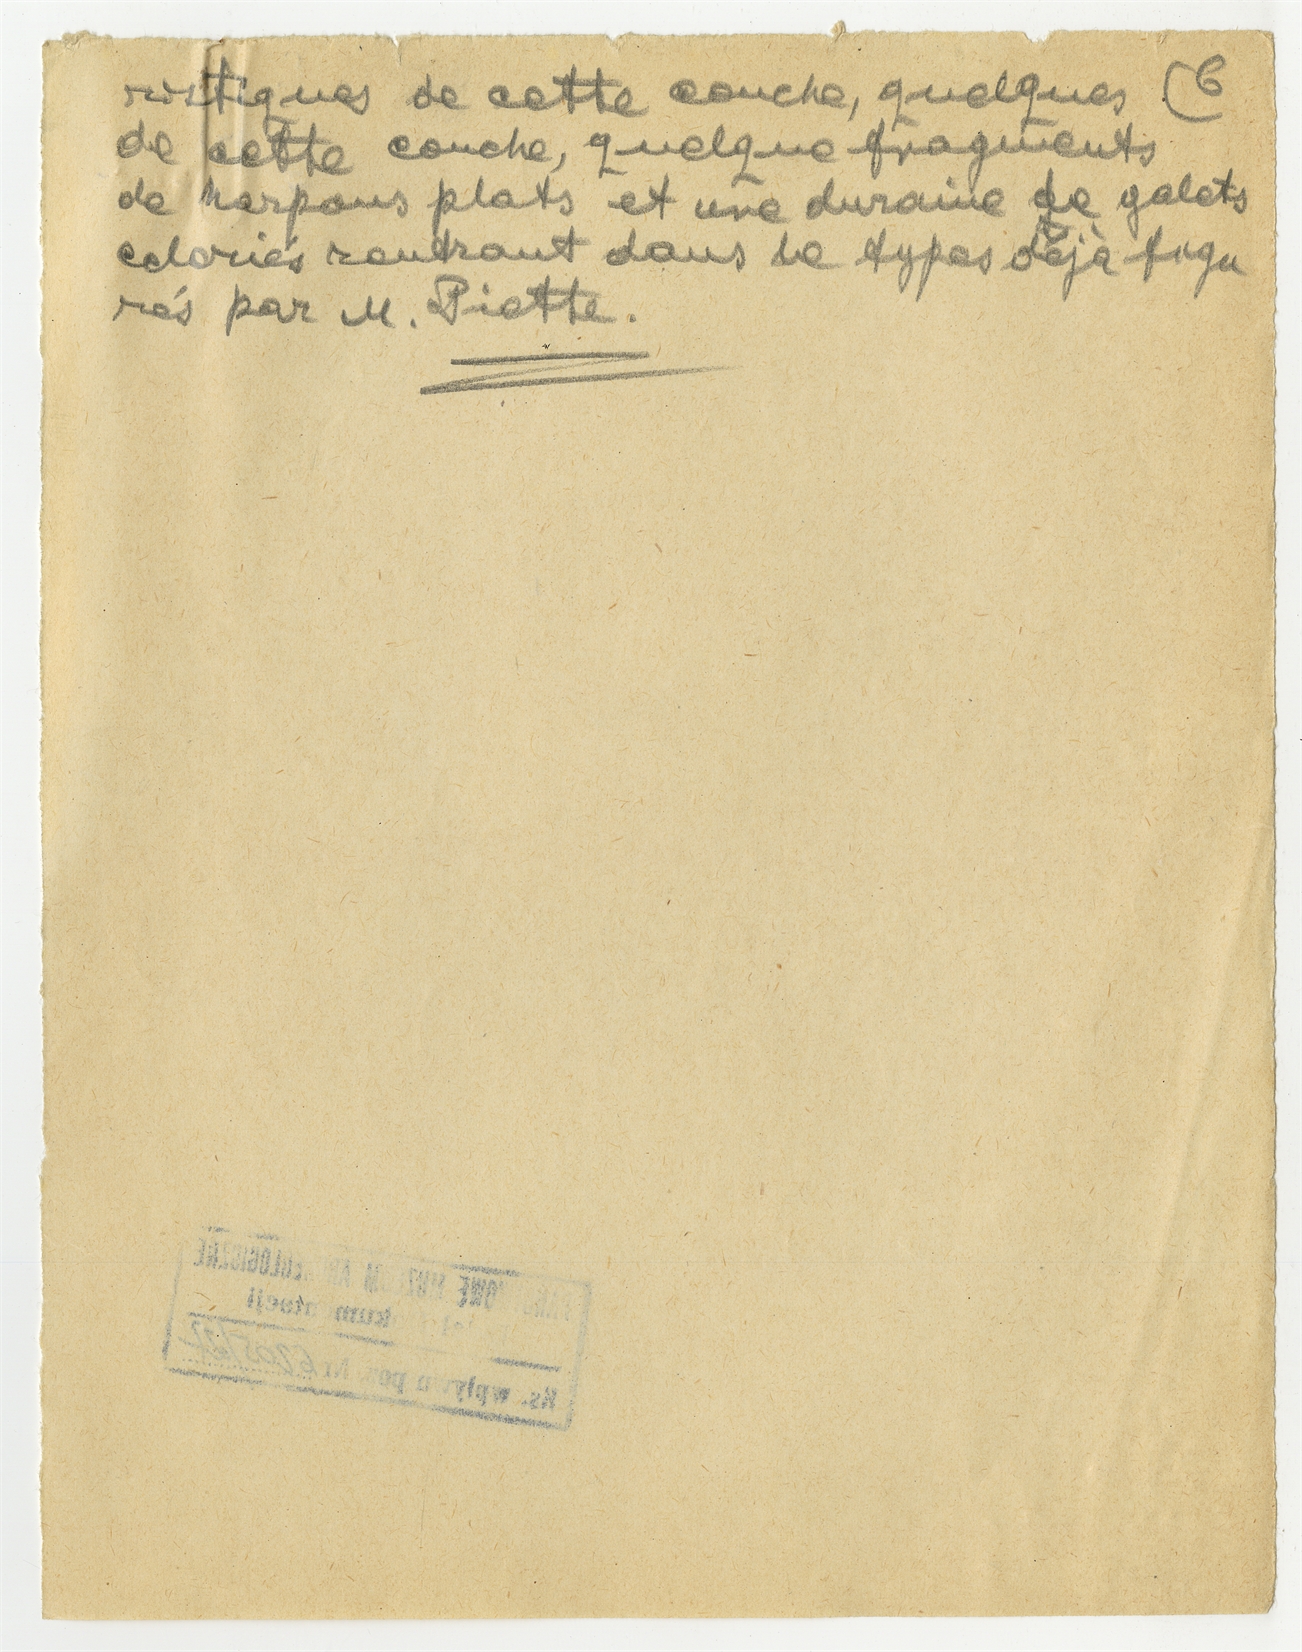 ristiques de cette couche, quelques (6
de cette couche, quelque fragments
de harpons plats et une duraine de galets
coloriés rentrant dans le types déjà figu
rés par M. Piette.
MUZEUM ARCHEOLOGICZNE
Ks. wpływu poz. Nr